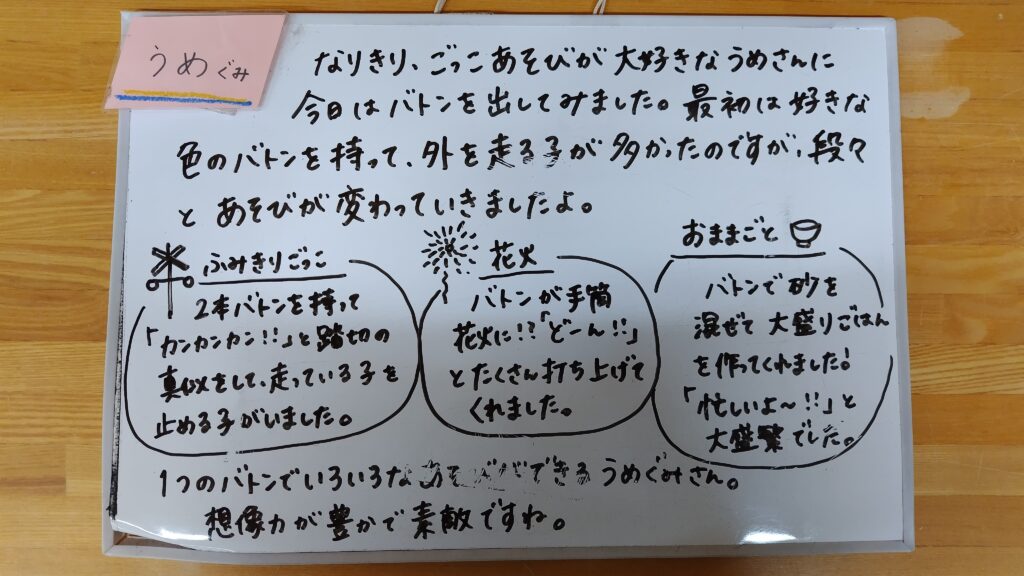 うめぐみ
なりきり、ごっこあそびが大好きなうめさんに
今日はバトンを出してみました。最初は好きな
色のバトンを持って、外を走る子が多かったのですが、段々
とあそびが変わっていきましたよ。
ふみきりごっこ
2本バトンを持って
「カンカンカン!!」と踏切の
真似をして、走っている子を
止める子がいました。
花火
バトンが手筒
花火に!?「どーん!!」
とたくさん打ち上げて
くれました。
おままごと
バトンで砂を
混ぜて大盛りごはん
を作ってくれました!
「忙しいよ〜!!」と
大盛繁でした。
1つのバトンでいろいろなあそびができるうめぐみさん。
想像力が豊かで素敵ですね。